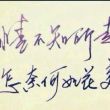 情不知所起
怎奈何如花美